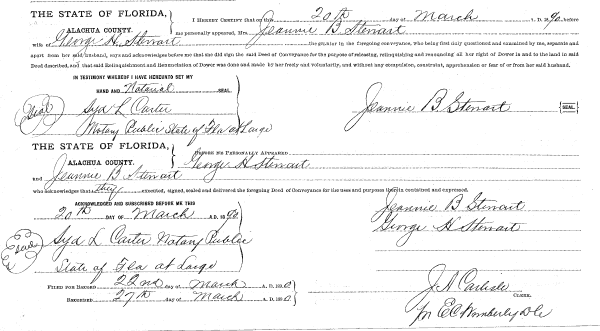 THE STATE OF FLORIDA,
ALACHUA COUNTY.
I HEREBY CERTIFY that on this 20th day of March A. D. 1890 before
me personally appeared, Mrs. Jeannie B Stewart
wife of George H. Stewart the grantor in the foregoing conveyance, who being first duly questioned and examined by me, separate and
apart from her said husband, says and acknowledges before me that she did sign the said Deed of Conveyance for the purpose of releasing, relinquishing and renouncing all her right of Dower in and to the land in said
Deed described, and that said Relinquishment and Renunciation of Dower was done and made by her freely and voluntarily, and without any compulsion, constraint, apprehension or fear of or from her said husband.
IN TESTIMONY WHEREOF I HAVE HEREUNTO SET MY
HAND AND Notarial SEAL
Seal
Syd L Carter
Notary Public State of Fla at Large
Jeannie B. Stewart
SEAL
THE STATE OF FLORIDA,
ALACHUA COUNTY.
BEFORE ME PERSONALLY APPEARED George H Stewart
and Jeannie B Stewart
who acknowledges that they executed, signed, sealed and delivered the foregoing Deed of Conveyance for the uses and purposes therein contained and expressed.
ACKNOWLEDGED AND SUBSCRIBED BEFORE ME THIS
20th DAY OF March A. D. 1890
Jeannie B Stewart
George H Stewart
Seal
Syd L Carter Notary Public
State of Fla at Large
FILED FOR RECORD 22nd day of March A. D. 1890
RECORDED 27th day of March A. D. 1890
J A Carlisle
CLERK.
Per E C Wimberly D C